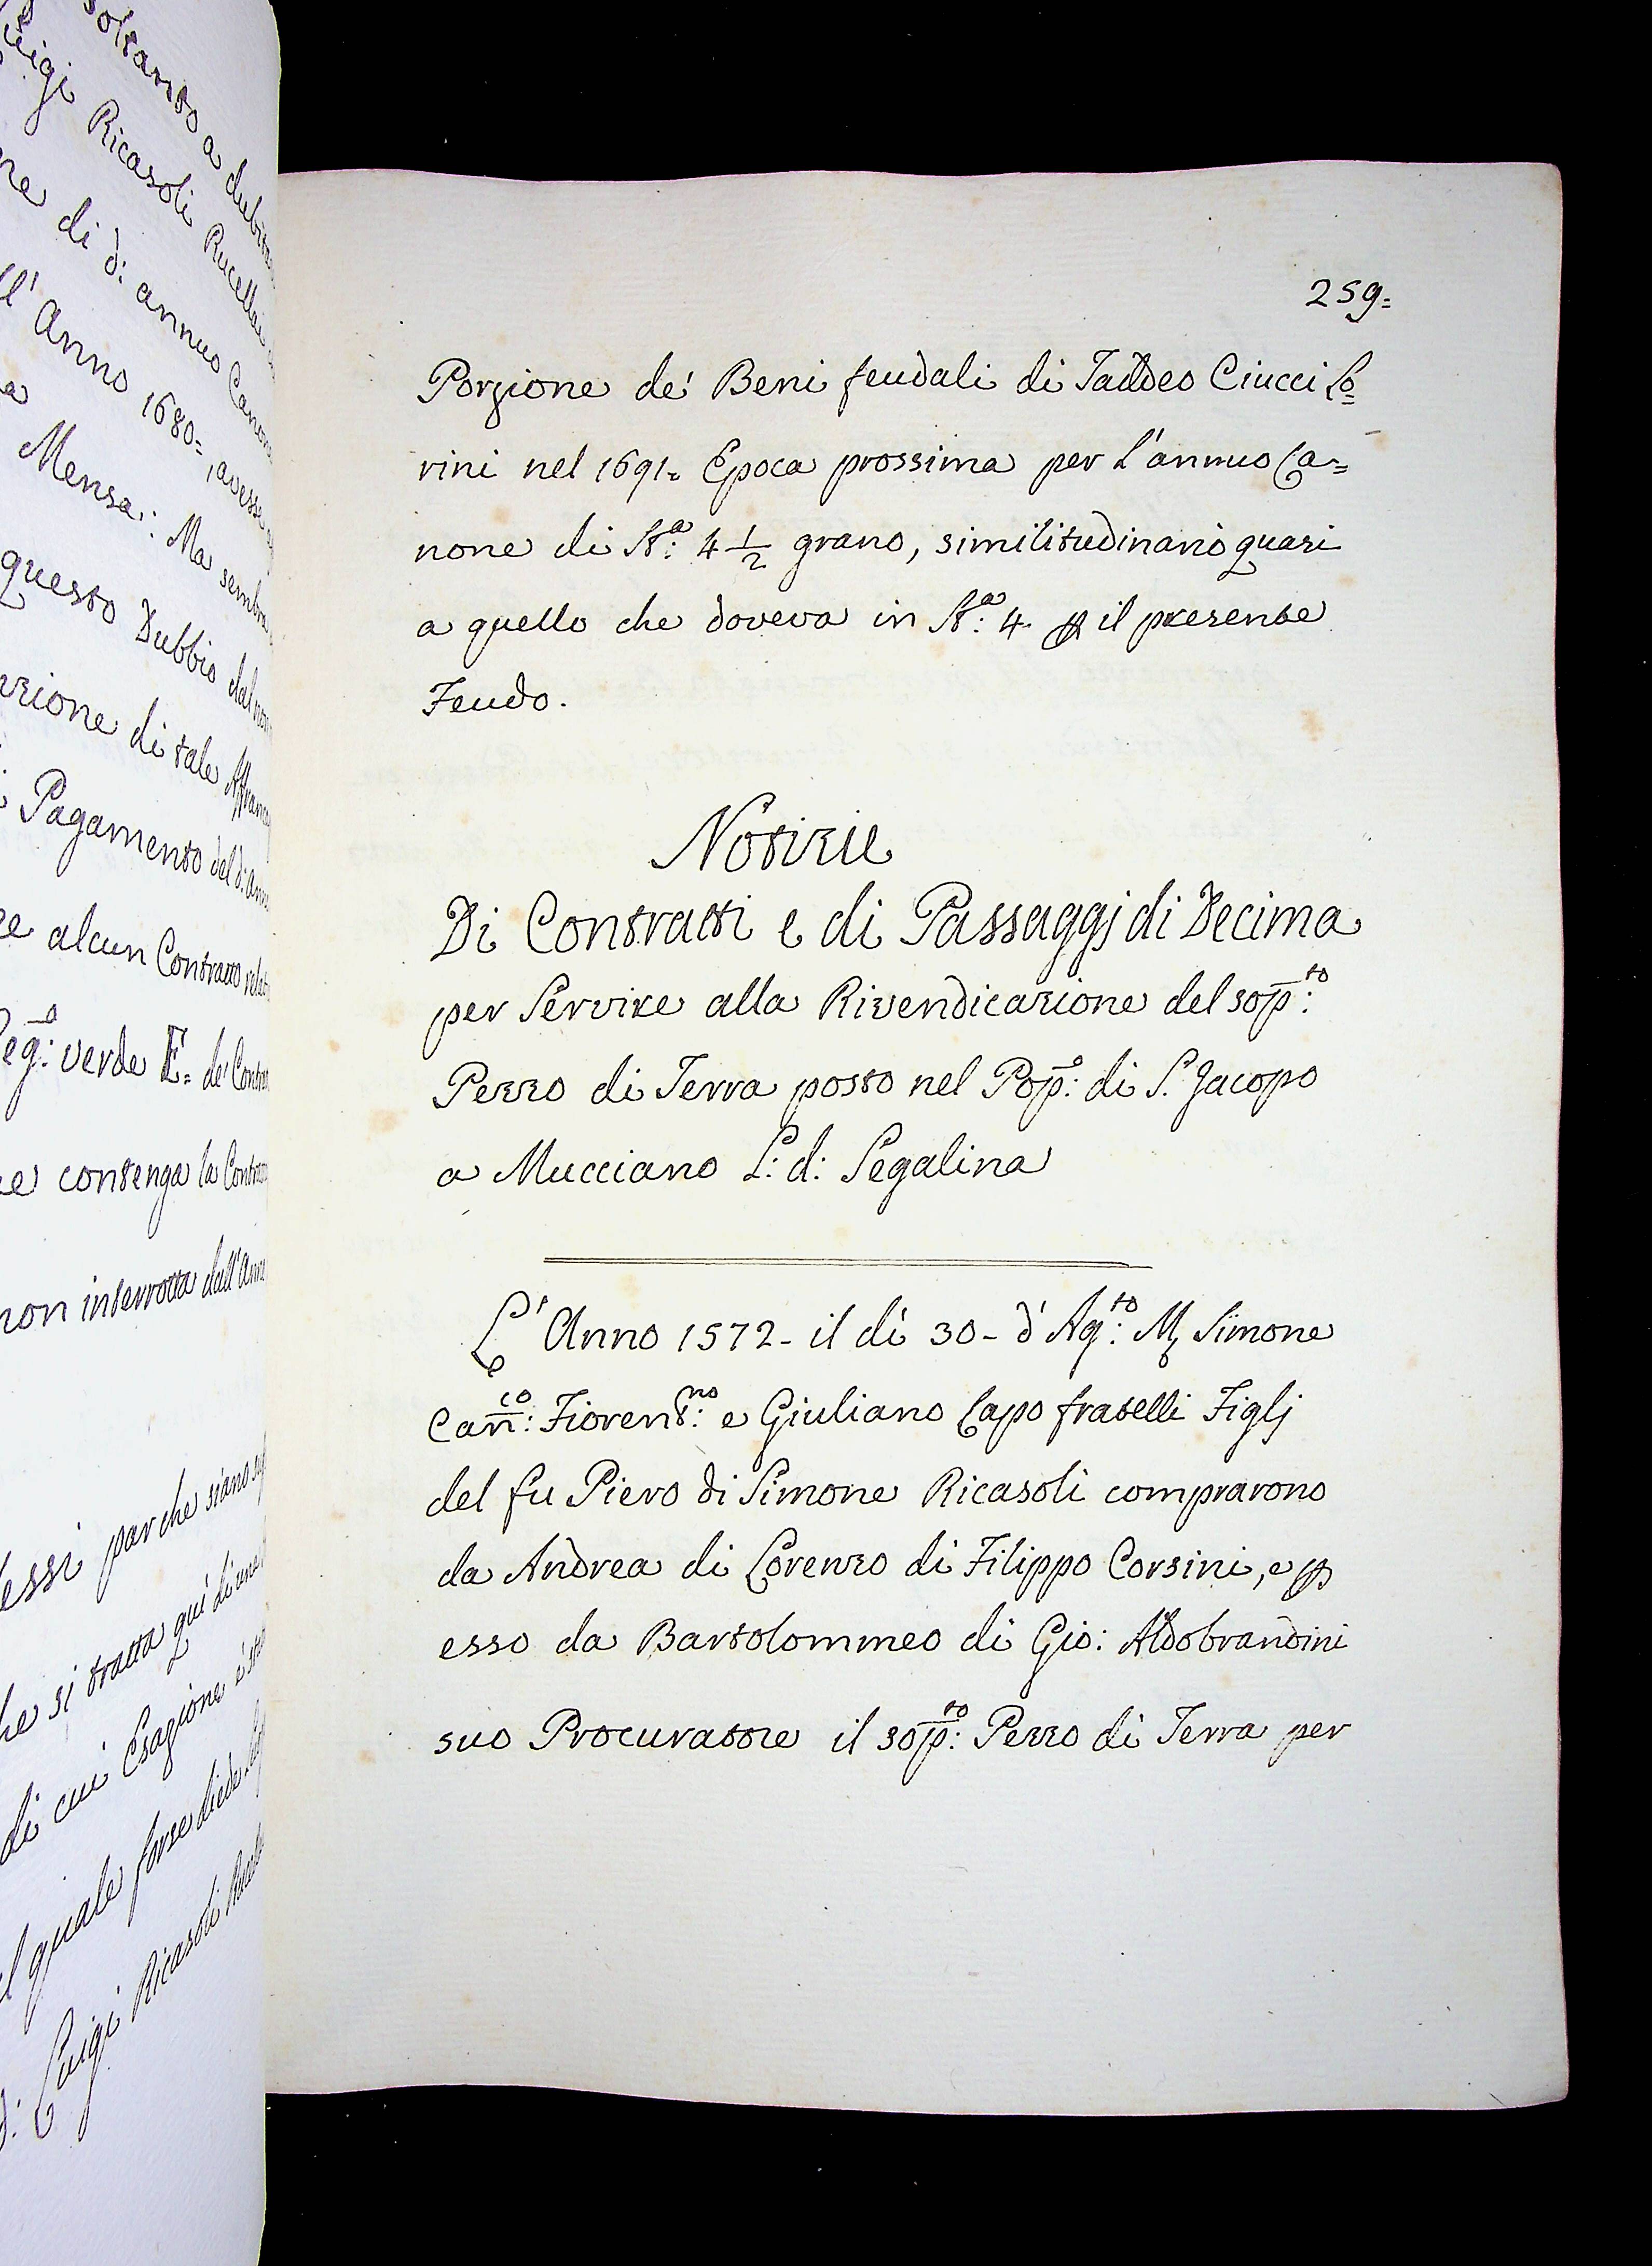 soltanto a
Luigi Ricasoli Rucellai
di d: annuo
Anno 1680=, avesse
Mensa: Ma
questo Dubbio dal
di tale
Pagamento del d:
alcun Contratto
Reg:º verde E= de' Contra
contenga la
non interrotta dall'
par che siano
che si tratta qui di
di cui Esazione è
il quale forse diede
d: Luigi Ricasoli
259=
Porzione de' Beni feudali di Taddeo Ciucci Lo=
rini nel 1691= Epoca prossima per l'annuo Ca=
none di St:ª 4 1/2 grano, similitudinario quasi
a quello che doveva in St:ª 4 p il presente
Feudo.
Notizie
Di Contratti e di Passaggj di Decima
per Servire alla Rivendicazione del sop:to
Pezzo di Terra posto nel Pop:º di S. Jacopo
a Mucciano L: d: Segalina
L' Anno 1572- il dì 30- d' Ag:to M. Simone
Can:co Fiorent:no e Giuliano Capo fratelli Figlj
del fu Piero di Simone Ricasoli comprarono
da Andrea di Lorenzo di Filippo Corsini, e p
esso da Bartolommeo di Gio: Aldobrandini
suo Procuratore il sop:to Pezzo di Terra per